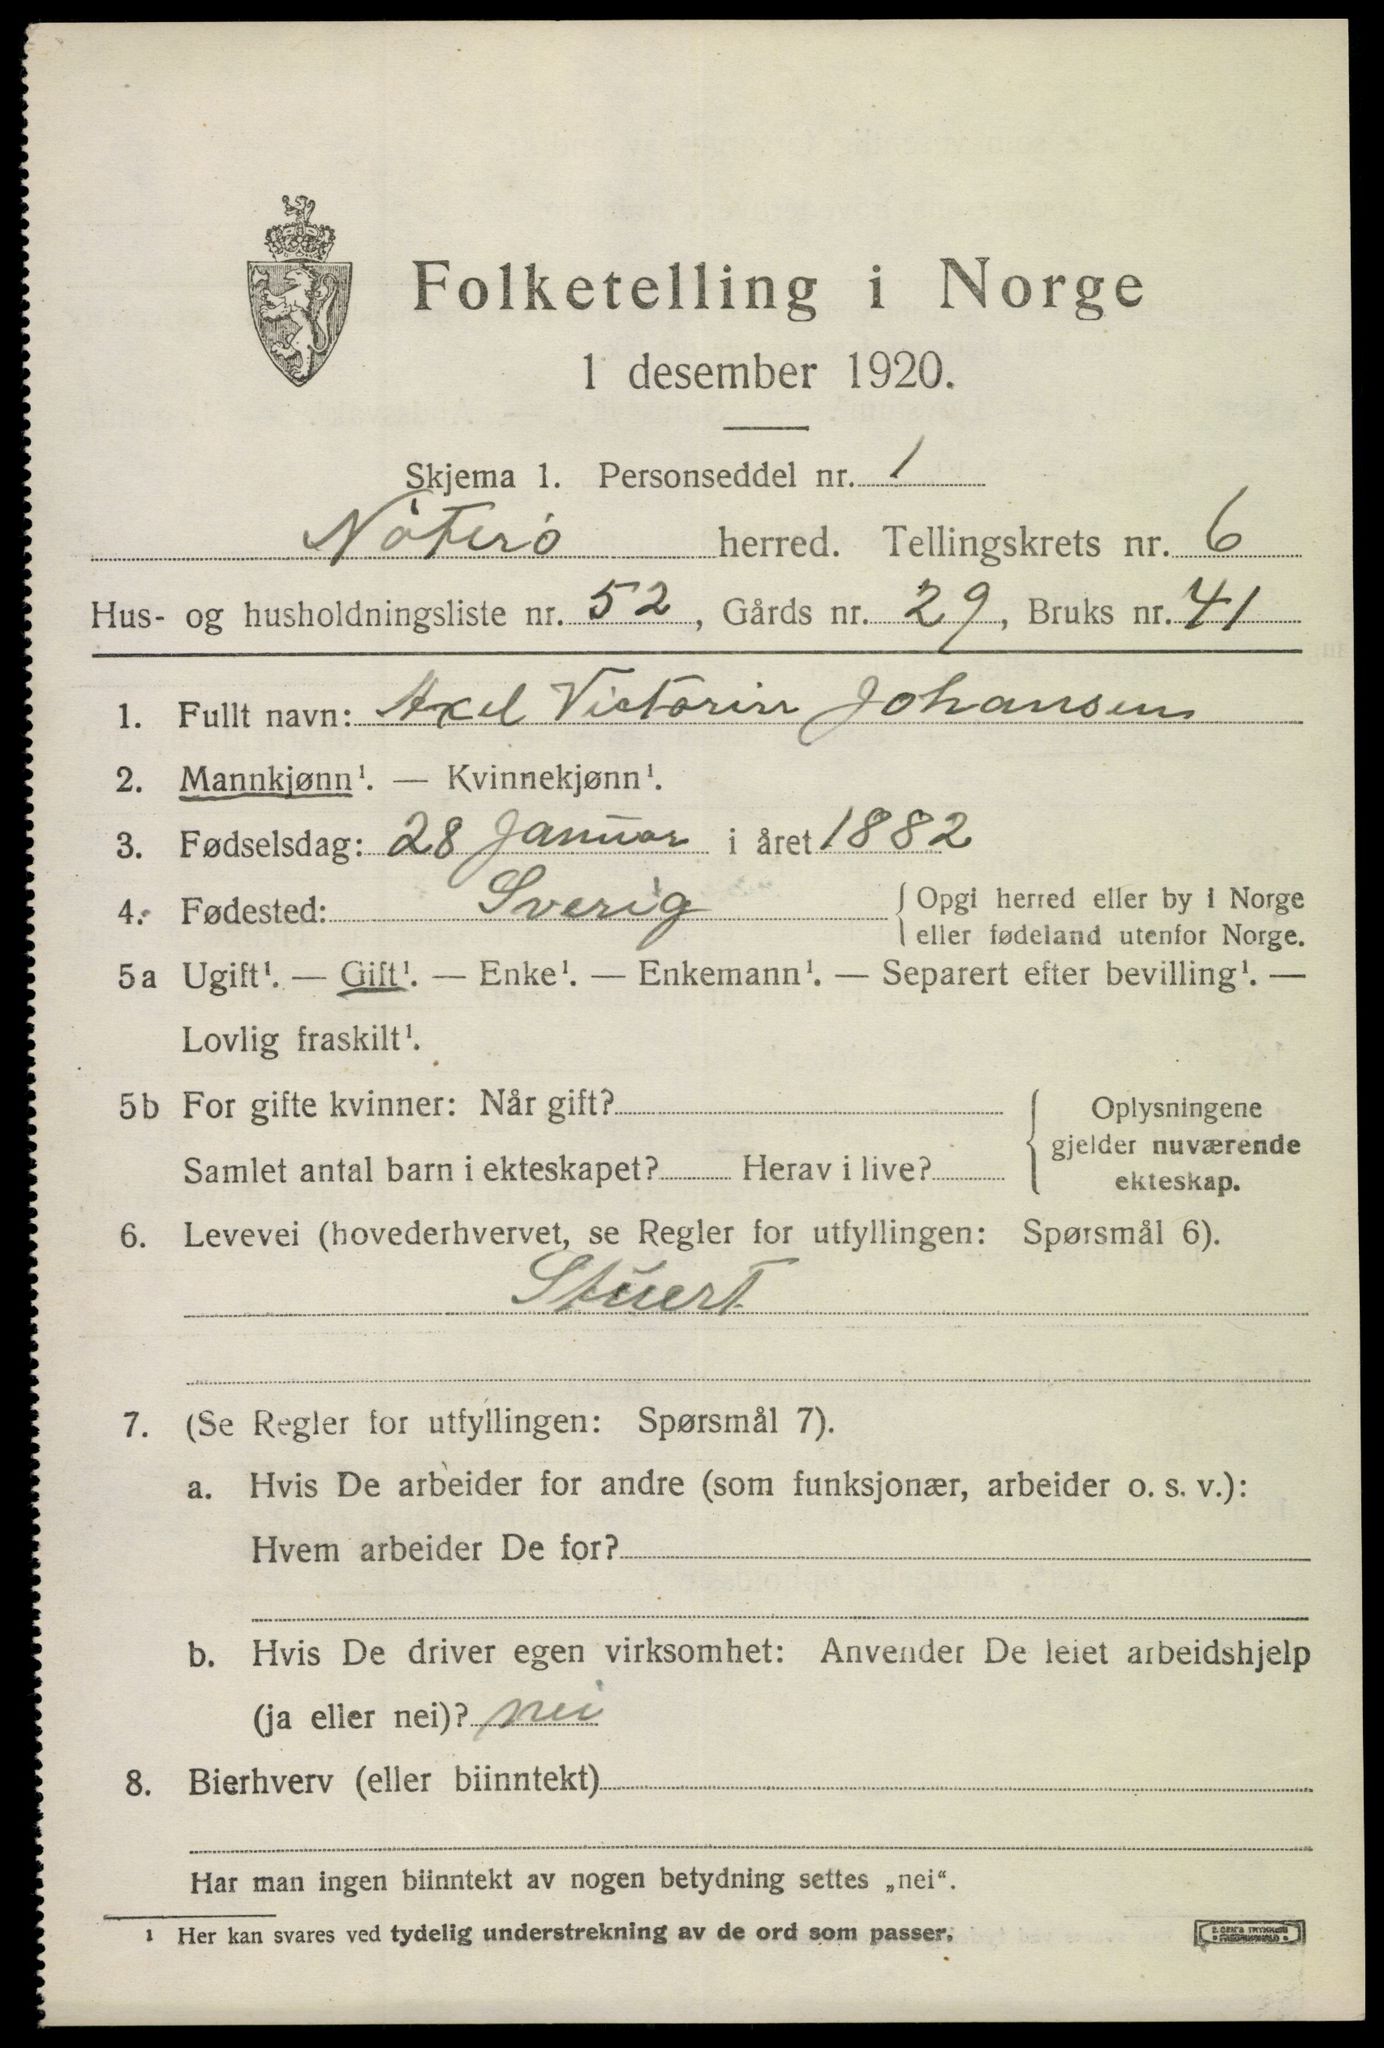 Folketelling i Norge
1 desember 1920.
Skjema 1. Personseddel nr. 1
Nöterö herred. Tellingskrets nr. 6
Hus- og husholdningsliste nr. 52, Gårds nr. 29, Bruks nr. 41
1. Fullt navn: Axel Victorin Johansen
2. Mannkjønn¹. — Kvinnekjønn¹.
3. Fødselsdag: 28 Januar i året 1882
4. Fødested: Sverig { Opgi herred eller by i Norge
eller fødeland utenfor Norge.
5a Ugift¹. — Gift¹. — Enke¹. — Enkemann¹. — Separert efter bevilling¹. —
Lovlig fraskilt¹.
5b For gifte kvinner: Når gift? { Oplysningene
gjelder nuværende
Samlet antal barn i ekteskapet? Herav i live? ekteskap.
6. Levevei (hovederhvervet, se Regler for utfyllingen: Spørsmål 6).
Stuert
7. (Se Regler for utfyllingen: Spørsmål 7).
a. Hvis De arbeider for andre (som funksjonær, arbeider o. s. v.):
Hvem arbeider De for?
b. Hvis De driver egen virksomhet: Anvender De leiet arbeidshjelp
(ja eller nei)? nei
8. Bierhverv (eller biinntekt)
Har man ingen biinntekt av nogen betydning settes „nei“.
¹ Her kan svares ved tydelig understrekning av de ord som passer.